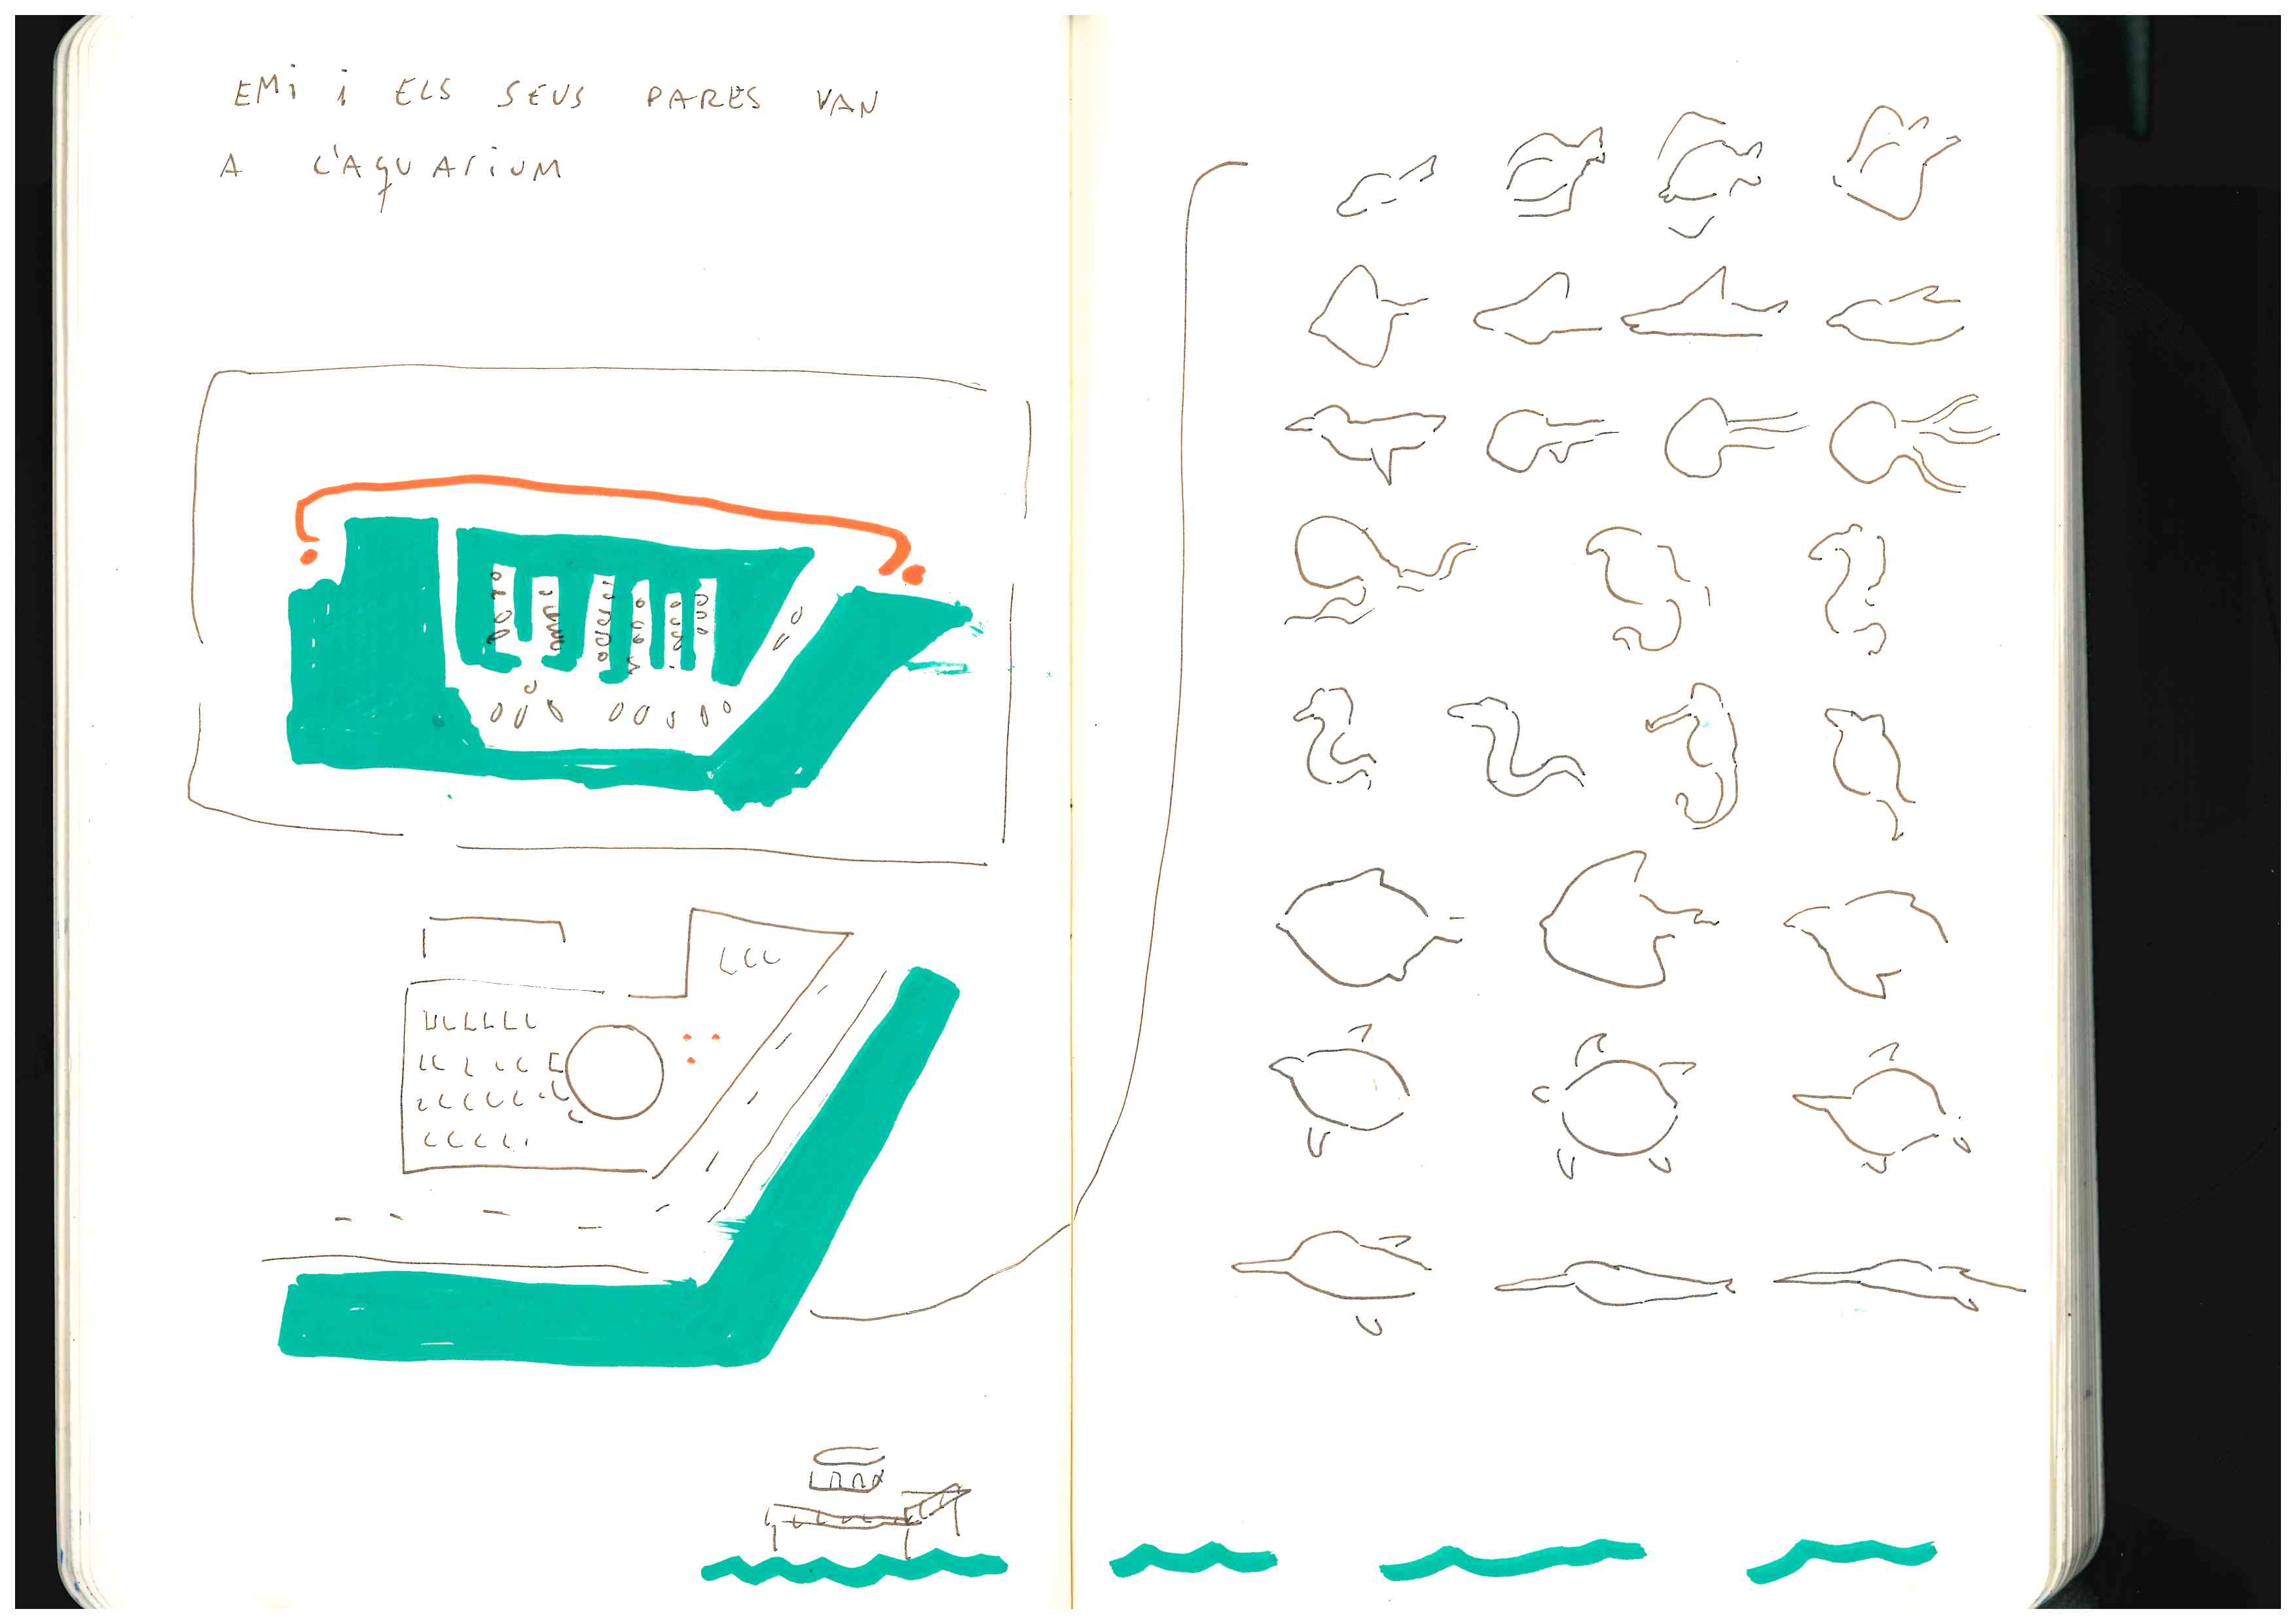 EMi i ELS SEUS PARES VAN
A L'AQUARIUM